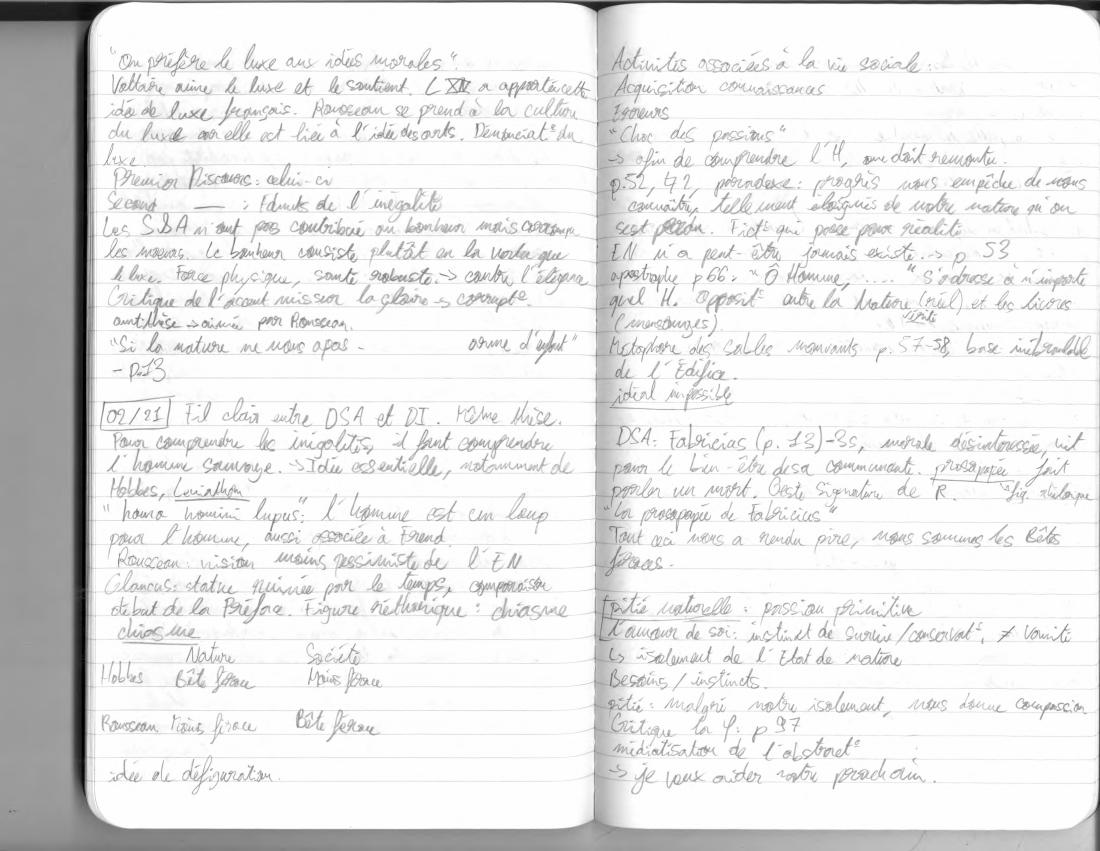 "On préfère le luxe aux idées morales".
Voltaire aime le luxe et le soutient. L XIV a apporté cette
idée de luxe français. Rousseau se prend à la culture
du luxe car elle est liée à l'idée des arts. Dénonciat° du
luxe
Premier Discours : celui-ci
Second —— : Fdmts de l'inégalité
Les S&A n'ont pas contribué au bonheur mais corrompu
les moeurs. Le bonheur consiste plutôt en la vertu que
le luxe. Force physique, santé robuste. → contre l'élégance
Critique de l'accent mis sur la gloire → corrupt°
antithèse → aimée par Rousseau.
"Si la nature ne nous a pas - arme d'enfant"
- p.13
02/21 Fil clair entre DSA et DI. Même thèse.
Pour comprendre les inégalités, il faut comprendre
l'homme sauvage. → Idée essentielle, notamment de
Hobbes, Leviathan
"homo homini lupus": l'homme est un loup
pour l'homme, aussi associée à Freud.
Rousseau : vision moins pessimiste de l'EN
Glancus: statue ruinée par le temps, comparaison
début de la Préface. Figure réthorique : chiasme
chiasme
Nature Société
Hobbes Bête féroce Moins féroce
Rousseau Moins féroce Bête féroce
idée de défiguration.
Activités associées à la vie sociale :
Acquisition connaissances
Erreurs
"Choc des passions"
→ afin de comprendre l'H, on doit remonter.
p.52, 42, paradoxe : progrès nous empêche de nous
connaître, tellement éloignés de notre nature qu'on
s'est perdu. Fict° qui passe pour réalité
EN n'a peut-être jamais existé. → p 53
apostrophe p 66 : "Ô Homme, .... " s'adresse à n'importe
quel H. opposit° entre la Nature (réel) et les livres
vérité
(mensonges).
Métaphore des sables mouvants p. 57-58, base inébranlable
de l'Édifice.
idéal impossible
DSA : Fabricius (p. 13)-3s, morale désintéressée, vit
pour le bien-être de sa communauté. prosopopée fait
parler un mort. C'est signature de R. ↳ fig. réthorique
"la prosopopée de Fabricius"
Tout ceci nous a rendu pire, nous sommes les Bêtes
féroces.
pitié naturelle : passion primitive
l'amour de soi : instinct de survie/conservat°, ≠ Vanité
↳ isolement de l'Etat de nature
Besoins / instincts.
pitié : malgré notre isolement, nous donne compassion
Critique la φ : p 97
médiatisation de l'abstract°
→ je veux aider notre prochain.